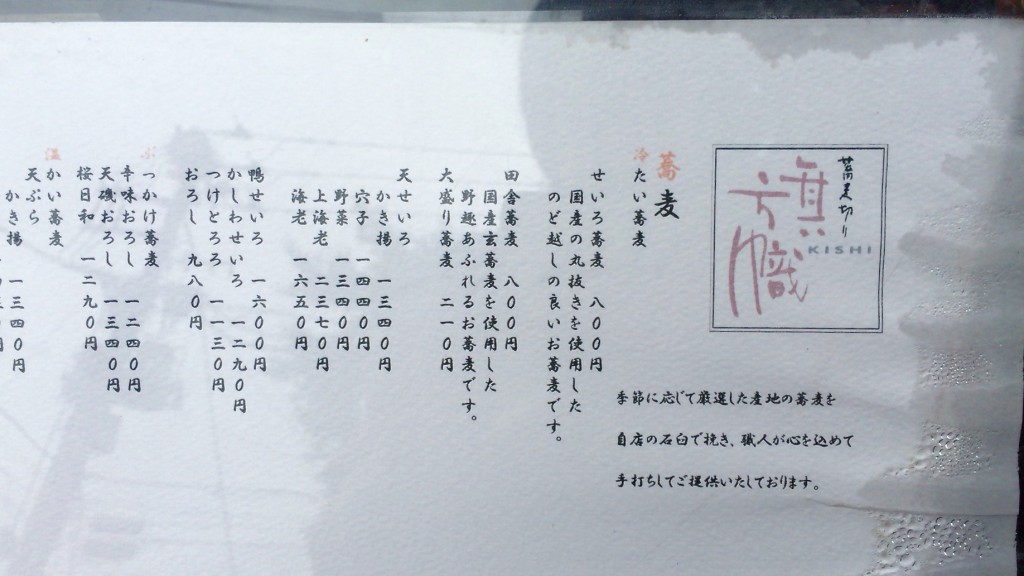 蕎麦切り
旗幟
KISHI
季節に応じて厳選した産地の蕎麦を
自店の石臼で挽き、職人が心を込めて
手打ちしてご提供いたしております。
蕎麦
冷たい蕎麦
せいろ蕎麦 八〇〇円
国産の丸抜きを使用した
のど越しの良いお蕎麦です。
田舎蕎麦 八〇〇円
国産玄蕎麦を使用した
野趣あふれるお蕎麦です。
大盛り蕎麦 二一〇円
天せいろ
かき揚 一三四〇円
穴子 一四四〇円
野菜 一三四〇円
上海老 二三七〇円
海老 一六五〇円
鴨せいろ 一六〇〇円
かしわせいろ 一二九〇円
つけとろろ 一一三〇円
おろし 九八〇円
ぶっかけ蕎麦
辛味おろし 一二四〇円
天磯おろし 一三四〇円
桜日和 一二九〇円
温かい蕎麦
天ぷら
かき揚 一三四〇円